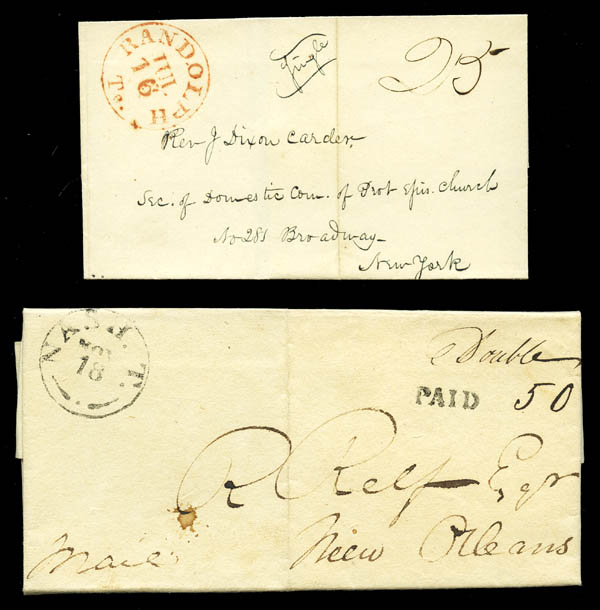 RANDOLPH Tn.
JUL
16
Single
25
Rev J Dixon Carder,
Sec. of Domestic Com. of Prot Epis. Church
No 281 Broadway
New York
NASH. T.
18
Double
PAID 50
R Relf Esqr
New Orleans
Mail